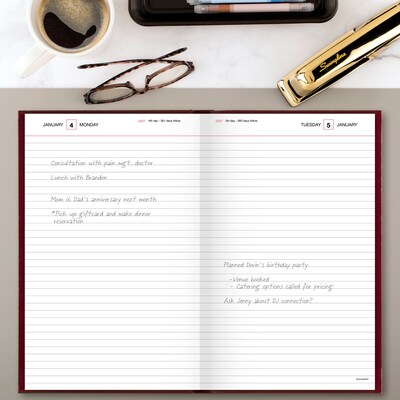 Swingline
JANUARY 4 MONDAY
TUESDAY 5 JANUARY
Consultation with pain mgt. doctor
Lunch with Brandon
Mom & Dad's anniversary next month
*Pick up giftcard and make dinner
reservation
Planned Devin's birthday party
-Venue booked
- Catering options called for pricing
Ask Jenny about DJ connection!!